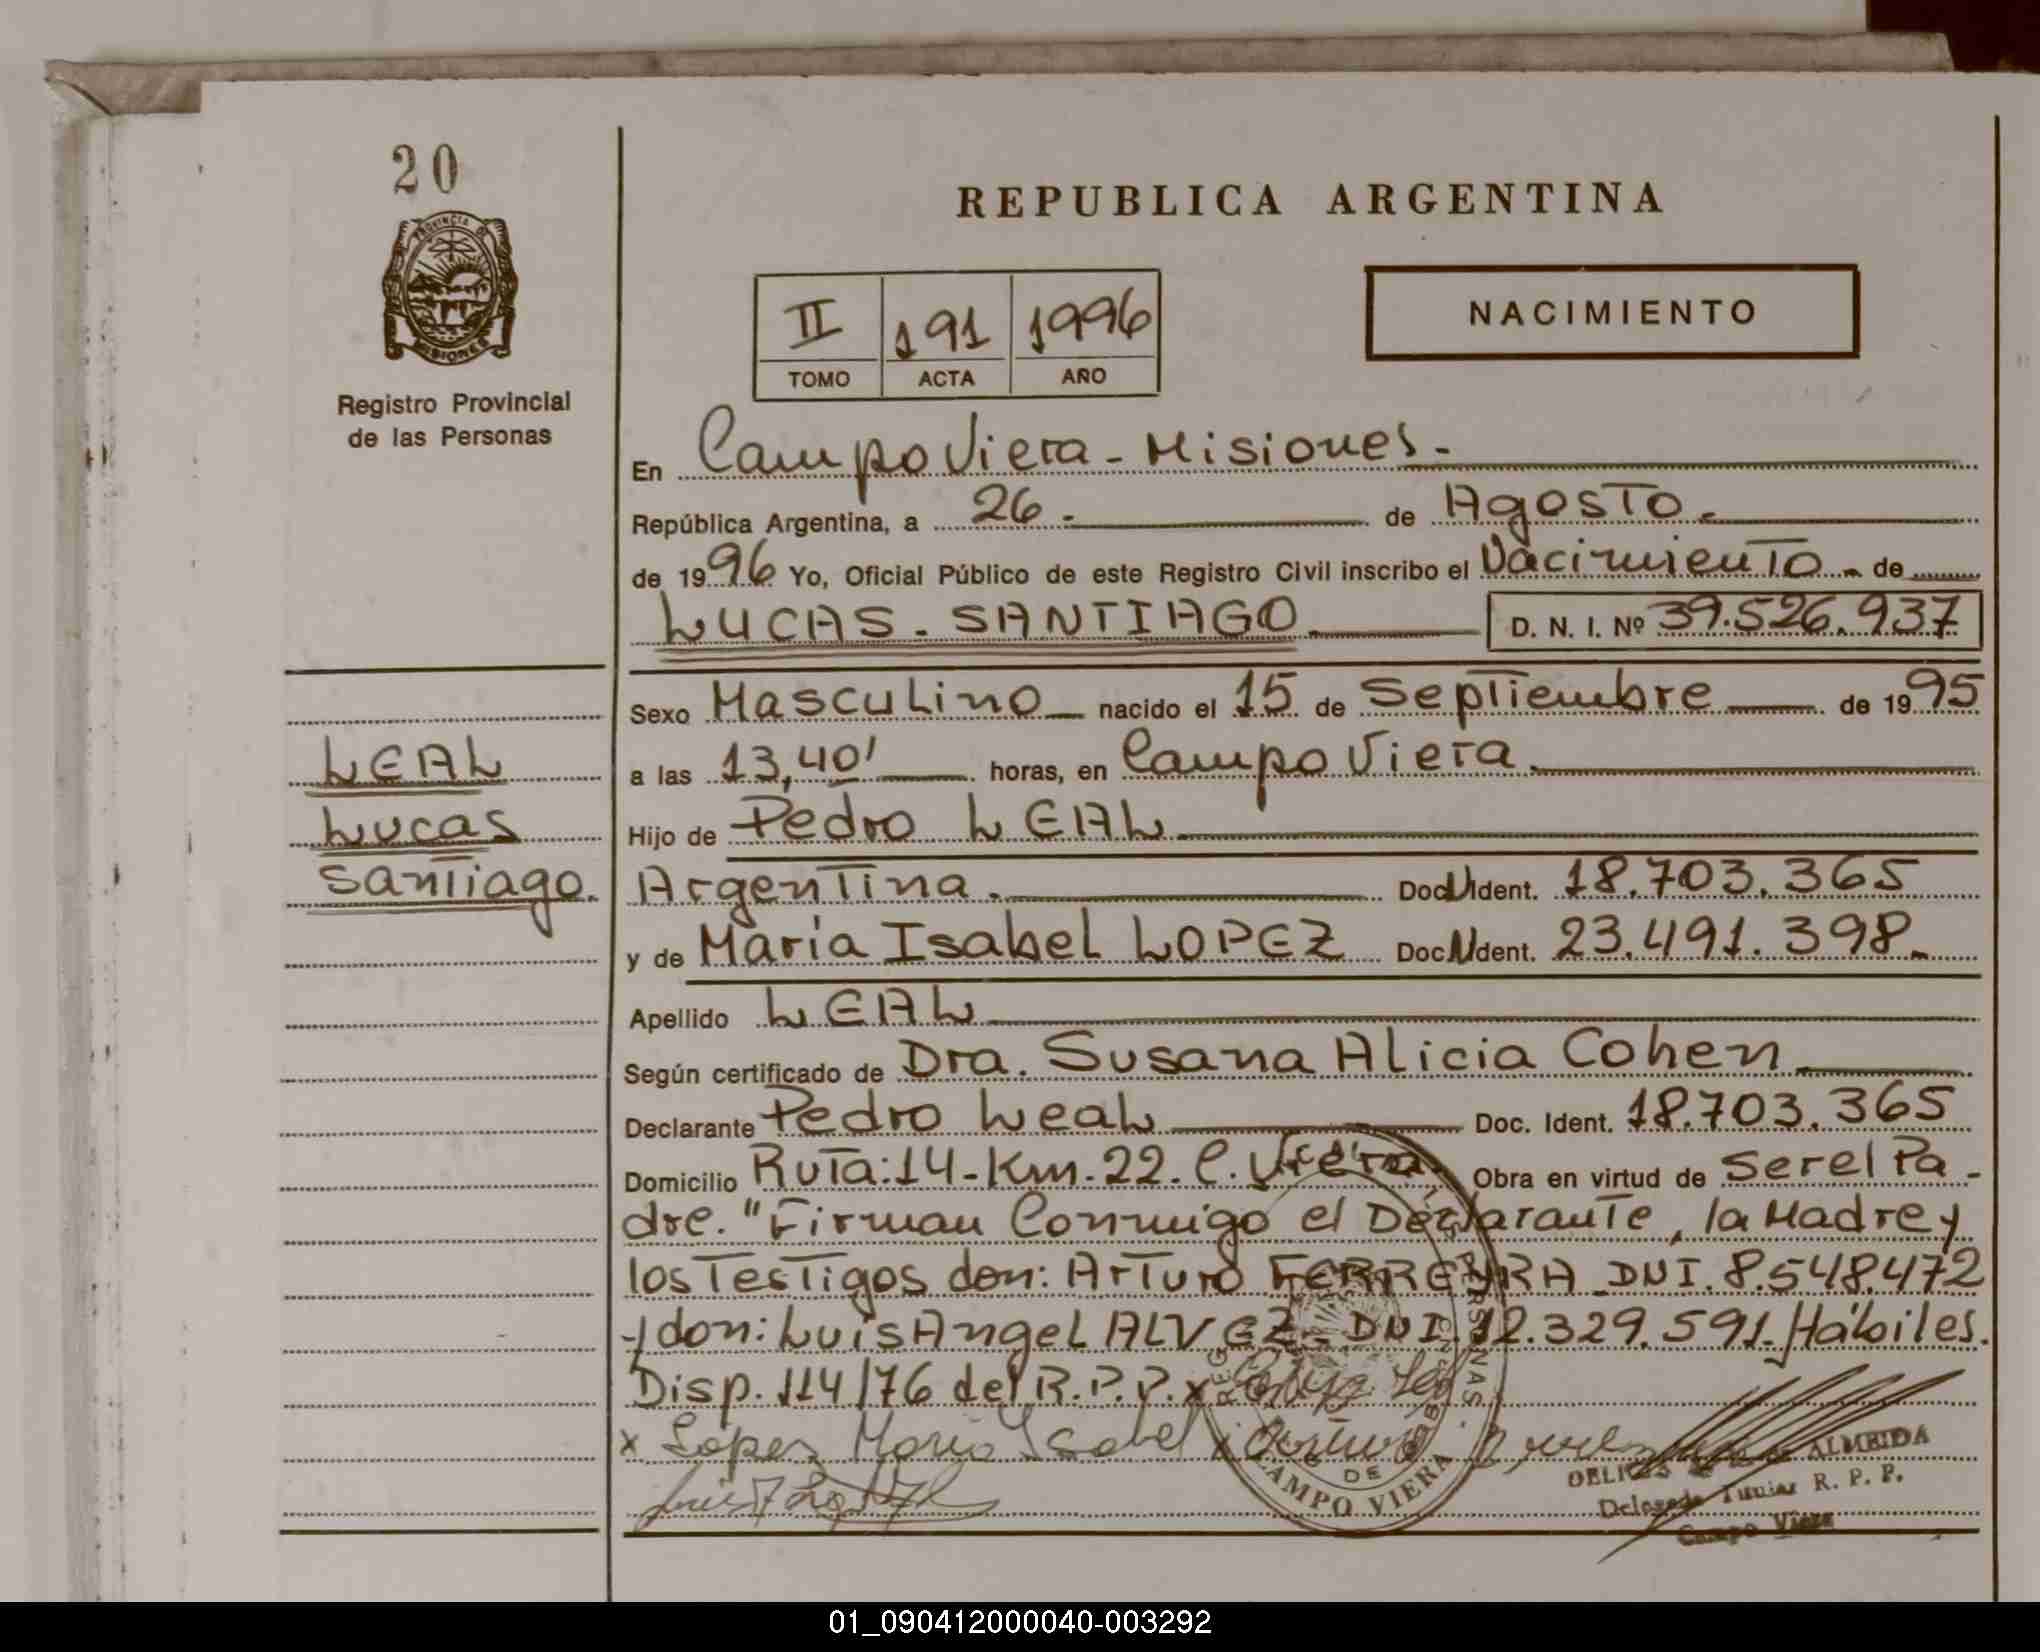 20
PROVINCIA DE
MISIONES
Registro Provincial
de las Personas
REPUBLICA ARGENTINA
II 191 1996
TOMO ACTA AÑO
NACIMIENTO
En Campo Viera - Misiones -
República Argentina, a 26 - de Agosto -
de 1996 Yo, Oficial Público de este Registro Civil inscribo el Nacimiento - de
LUCAS - SANTIAGO D. N. I. Nº 39.526.937
Sexo Masculino nacido el 15 de Septiembre de 1995
a las 13,40' horas, en Campo Viera.
Hijo de Pedro LEAL
Argentina. Doc N Ident. 18.703.365
y de María Isabel LOPEZ Doc N Ident. 23.491.398 -
Apellido LEAL
Según certificado de Dra. Susana Alicia Cohen
Declarante Pedro Leal Doc. Ident. 18.703.365
Domicilio Ruta:14-Km-22. C. Viera. Obra en virtud de Ser el Pa -
dre. "Firman Conmigo el Declarante, la Madre y
los Testigos don: Arturo FERREYRA DNI. 8.548.472
y don: Luis Angel ALVEZ - DNI. 12.329.591 - Hábiles.
Disp. 114/76 del R.P.P. x
x Lopez Maria Isabel x Arturo
ALMEIDA
Delegado Titular R. P. P.
Campo Viera
LEAL
Lucas
Santiago.
CAMPO VIERA
01_090412000040-003292